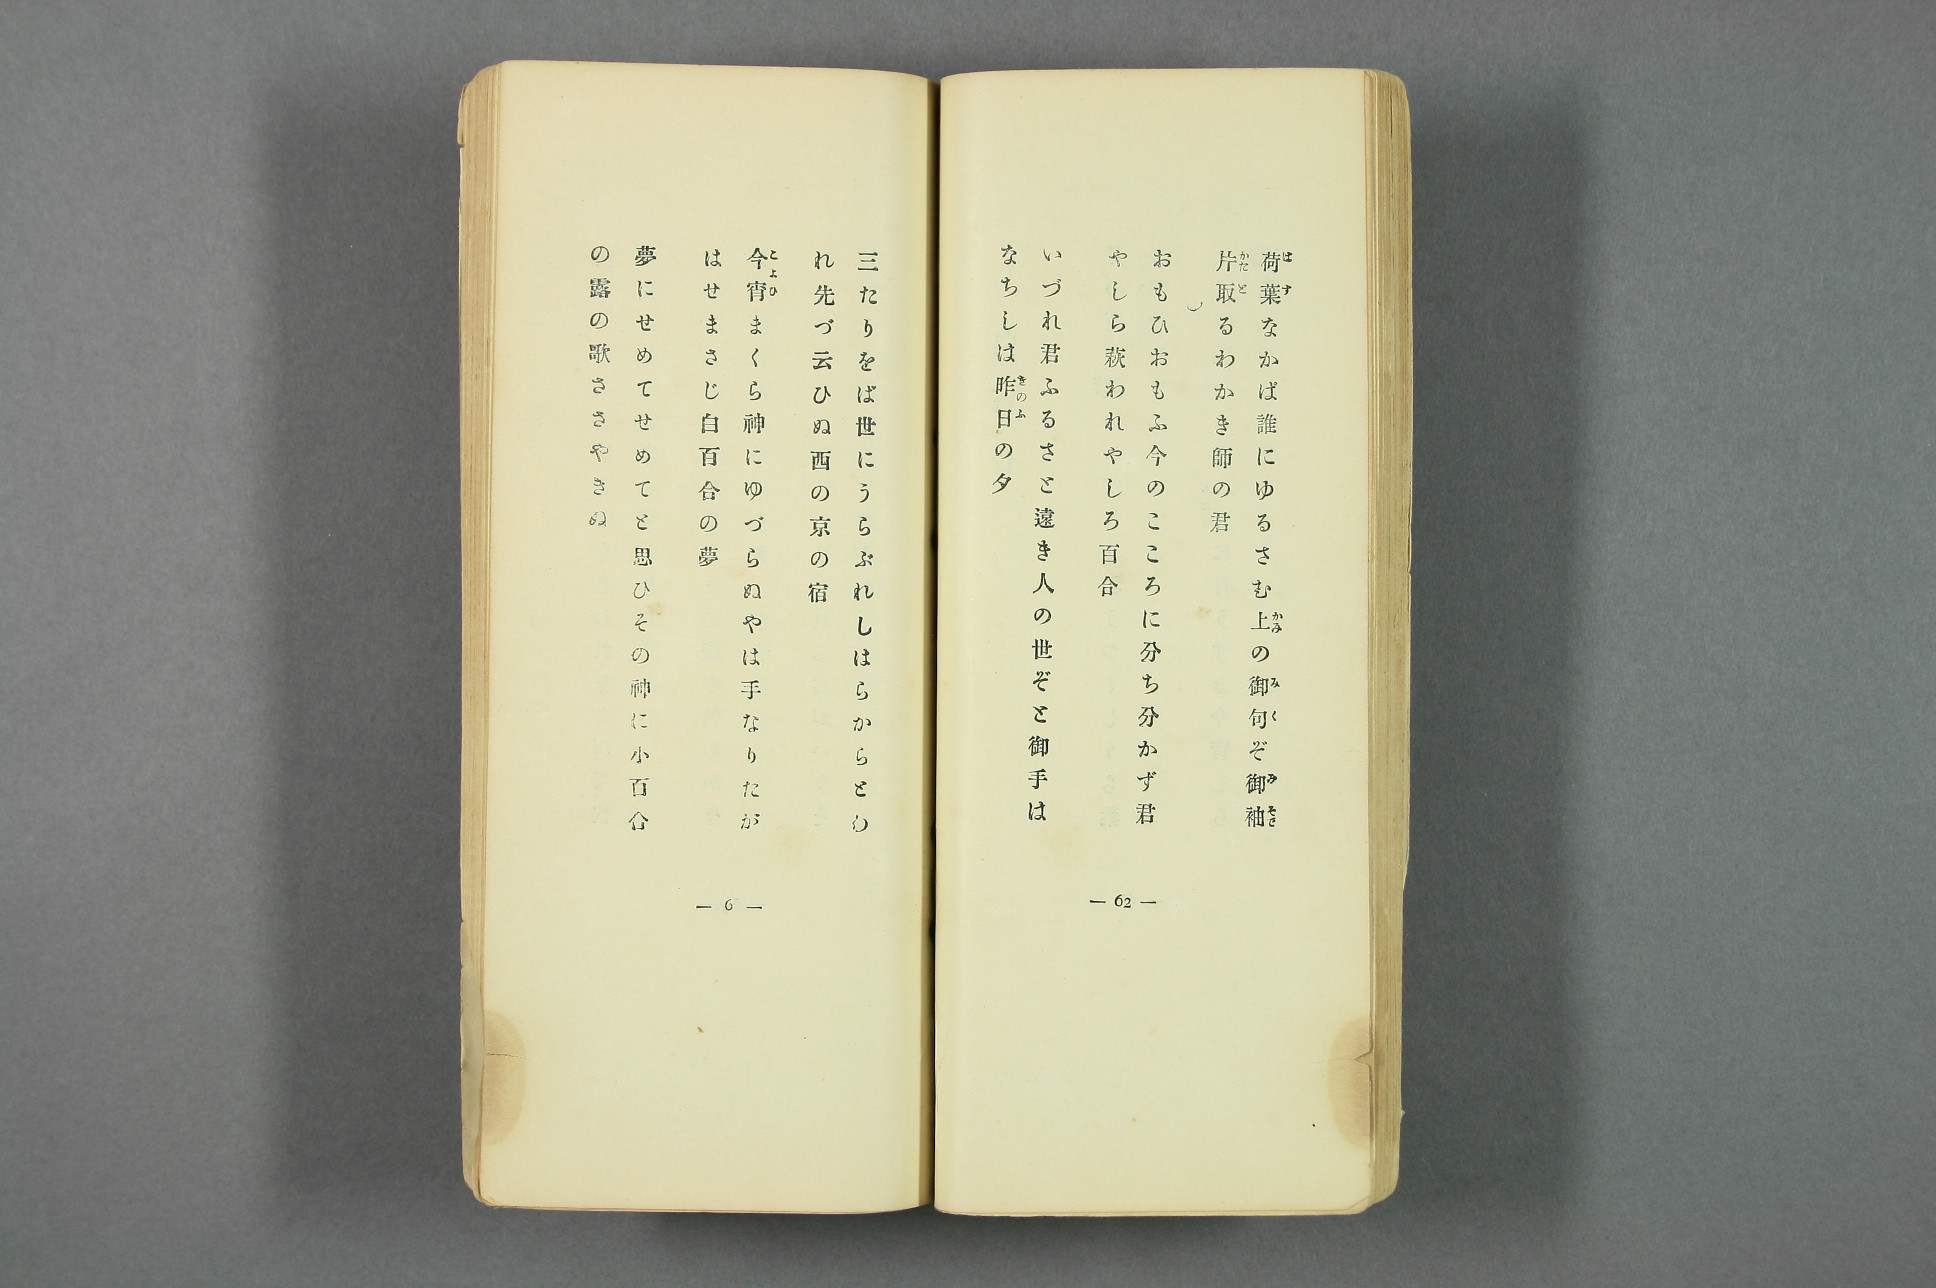 荷葉なかば誰にゆるさむ上の御句ぞ御袖
片取るわかき師の君
おもひおもふ今のこころに分ち分かず君
やしら萩われやしろ百合
いづれ君ふるさと遠き人の世ぞと御手は
なちしは昨日の夕
— 62 —
三たりをば世にうらぶれしはらからとわ
れ先づ云ひぬ西の京の宿
今宵まくら神にゆづらぬやは手なりたが
はせまさじ白百合の夢
夢にせめてせめてと思ひその神に小百合
の露の歌ささやきぬ
— 6 —